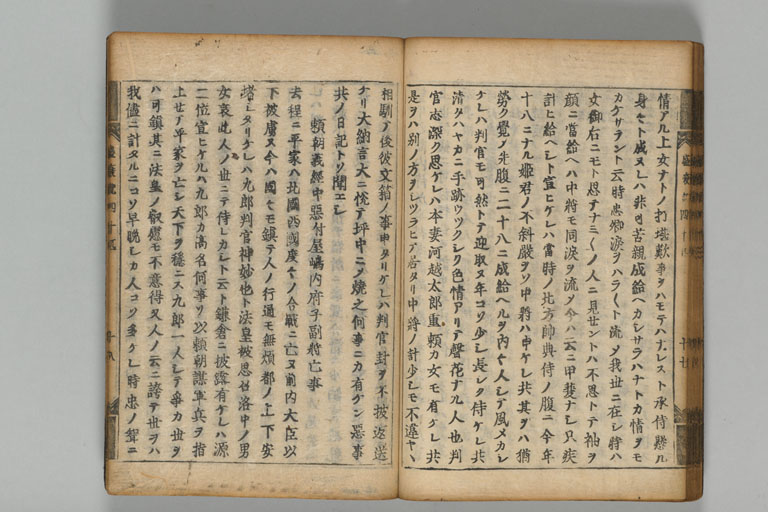 情アル上女ナトノ打堪歎事ヲハモテハナレスト承侍懸ル
身々ト成ヌレハ非可苦親成給ヘカシサラハナトカ情ヲモ
カケサラント云時忠卿涙ヲハラ〱ト流メ我世ニ在シ時ハ
女御后ニモト思ナミ〱ノ人ニ見セントハ不思トテ袖ヲ
顔ニ當給ヘハ中將モ同涙ヲ流メ今ハ云ニ甲斐ナシ只疾
計ヒ給ヘシト宣ヒケレハ當時ノ北方帥典侍ノ腹ニ今年
十八ニナル姫君ノ不斜嚴ヲソ中將ハ申ケレ共其ヲハ猶
勞ク覺ノ先腹ニ二十八ニ成給ヘルヲ内々人シテ風メカシ
ケレハ判官モ可然トテ迎取ヌ年コソ少シ長シク侍ケレ共
清タハヤカニ手跡ウツクシク色情アリテ聲花ナル人也判
官志深ク思ケレハ本妻河越太郎重頼カ女モ有ケレ共
是ヲハ別ノ方ヲシツラヒテ居タリ中將ノ計少シモ不違ヤヽ
相馴テ後彼文箱ノ事申タリケレハ判官封ヲ不披返送
ケリ大納言大ニ悦テ坪中ニメ燒之何事ニカ有ケン惡事
共ノ日記トソ聞エシ
頼朝義經中惡付屋嶋内府子副將亡事
去程ニ平家ハ北國西國度々ノ合戰ニ亡ヌ前内大臣以
下被虜ヌ今ハ國々モ鎮テ人ノ行通モ無煩都ノ上下安
堵シタリケレハ九郎判官神妙也ト法皇被思召洛中ノ男
女哀此人ノ世ニテ侍レカシト云ト鎌倉ニ披露有ケレハ源
二位宣ヒケルハ九郎カ高名何事ソ以頼朝謀軍兵ヲ指
上セテ平家ヲ亡シ天下ヲ穩ニス九郎一人シテ爭カ世ヲ
ハ可鎮其ニ法皇ノ叡慮モ不意得又人ノ云ニ誇テ世ヲハ
我儘ニ計タルニコソ早晩シカ人コソ多ケレ時忠ノ聟ニ